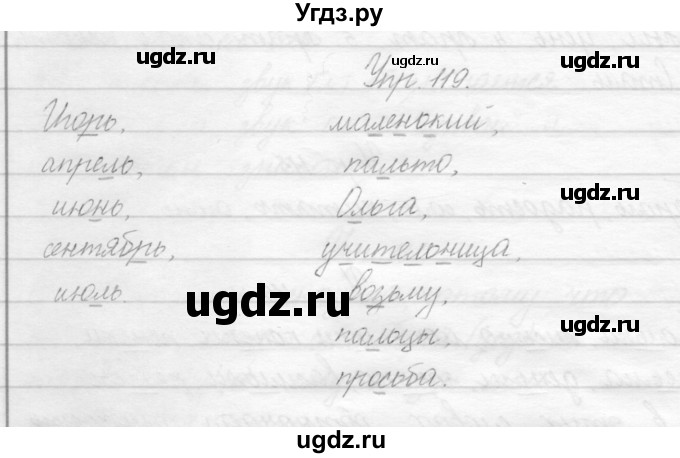 Угдз.ру
Упр. 119.
Игорь, маленький,
апрель, пальто,
июнь, Ольга,
сентябрь, учительница,
июль. возьму,
пальцы,
просьба.
ugdz.ru
ugdz.ru
ugdz.ru
ugdz.ru
ugdz.ru
ugdz.ru
ugdz.ru